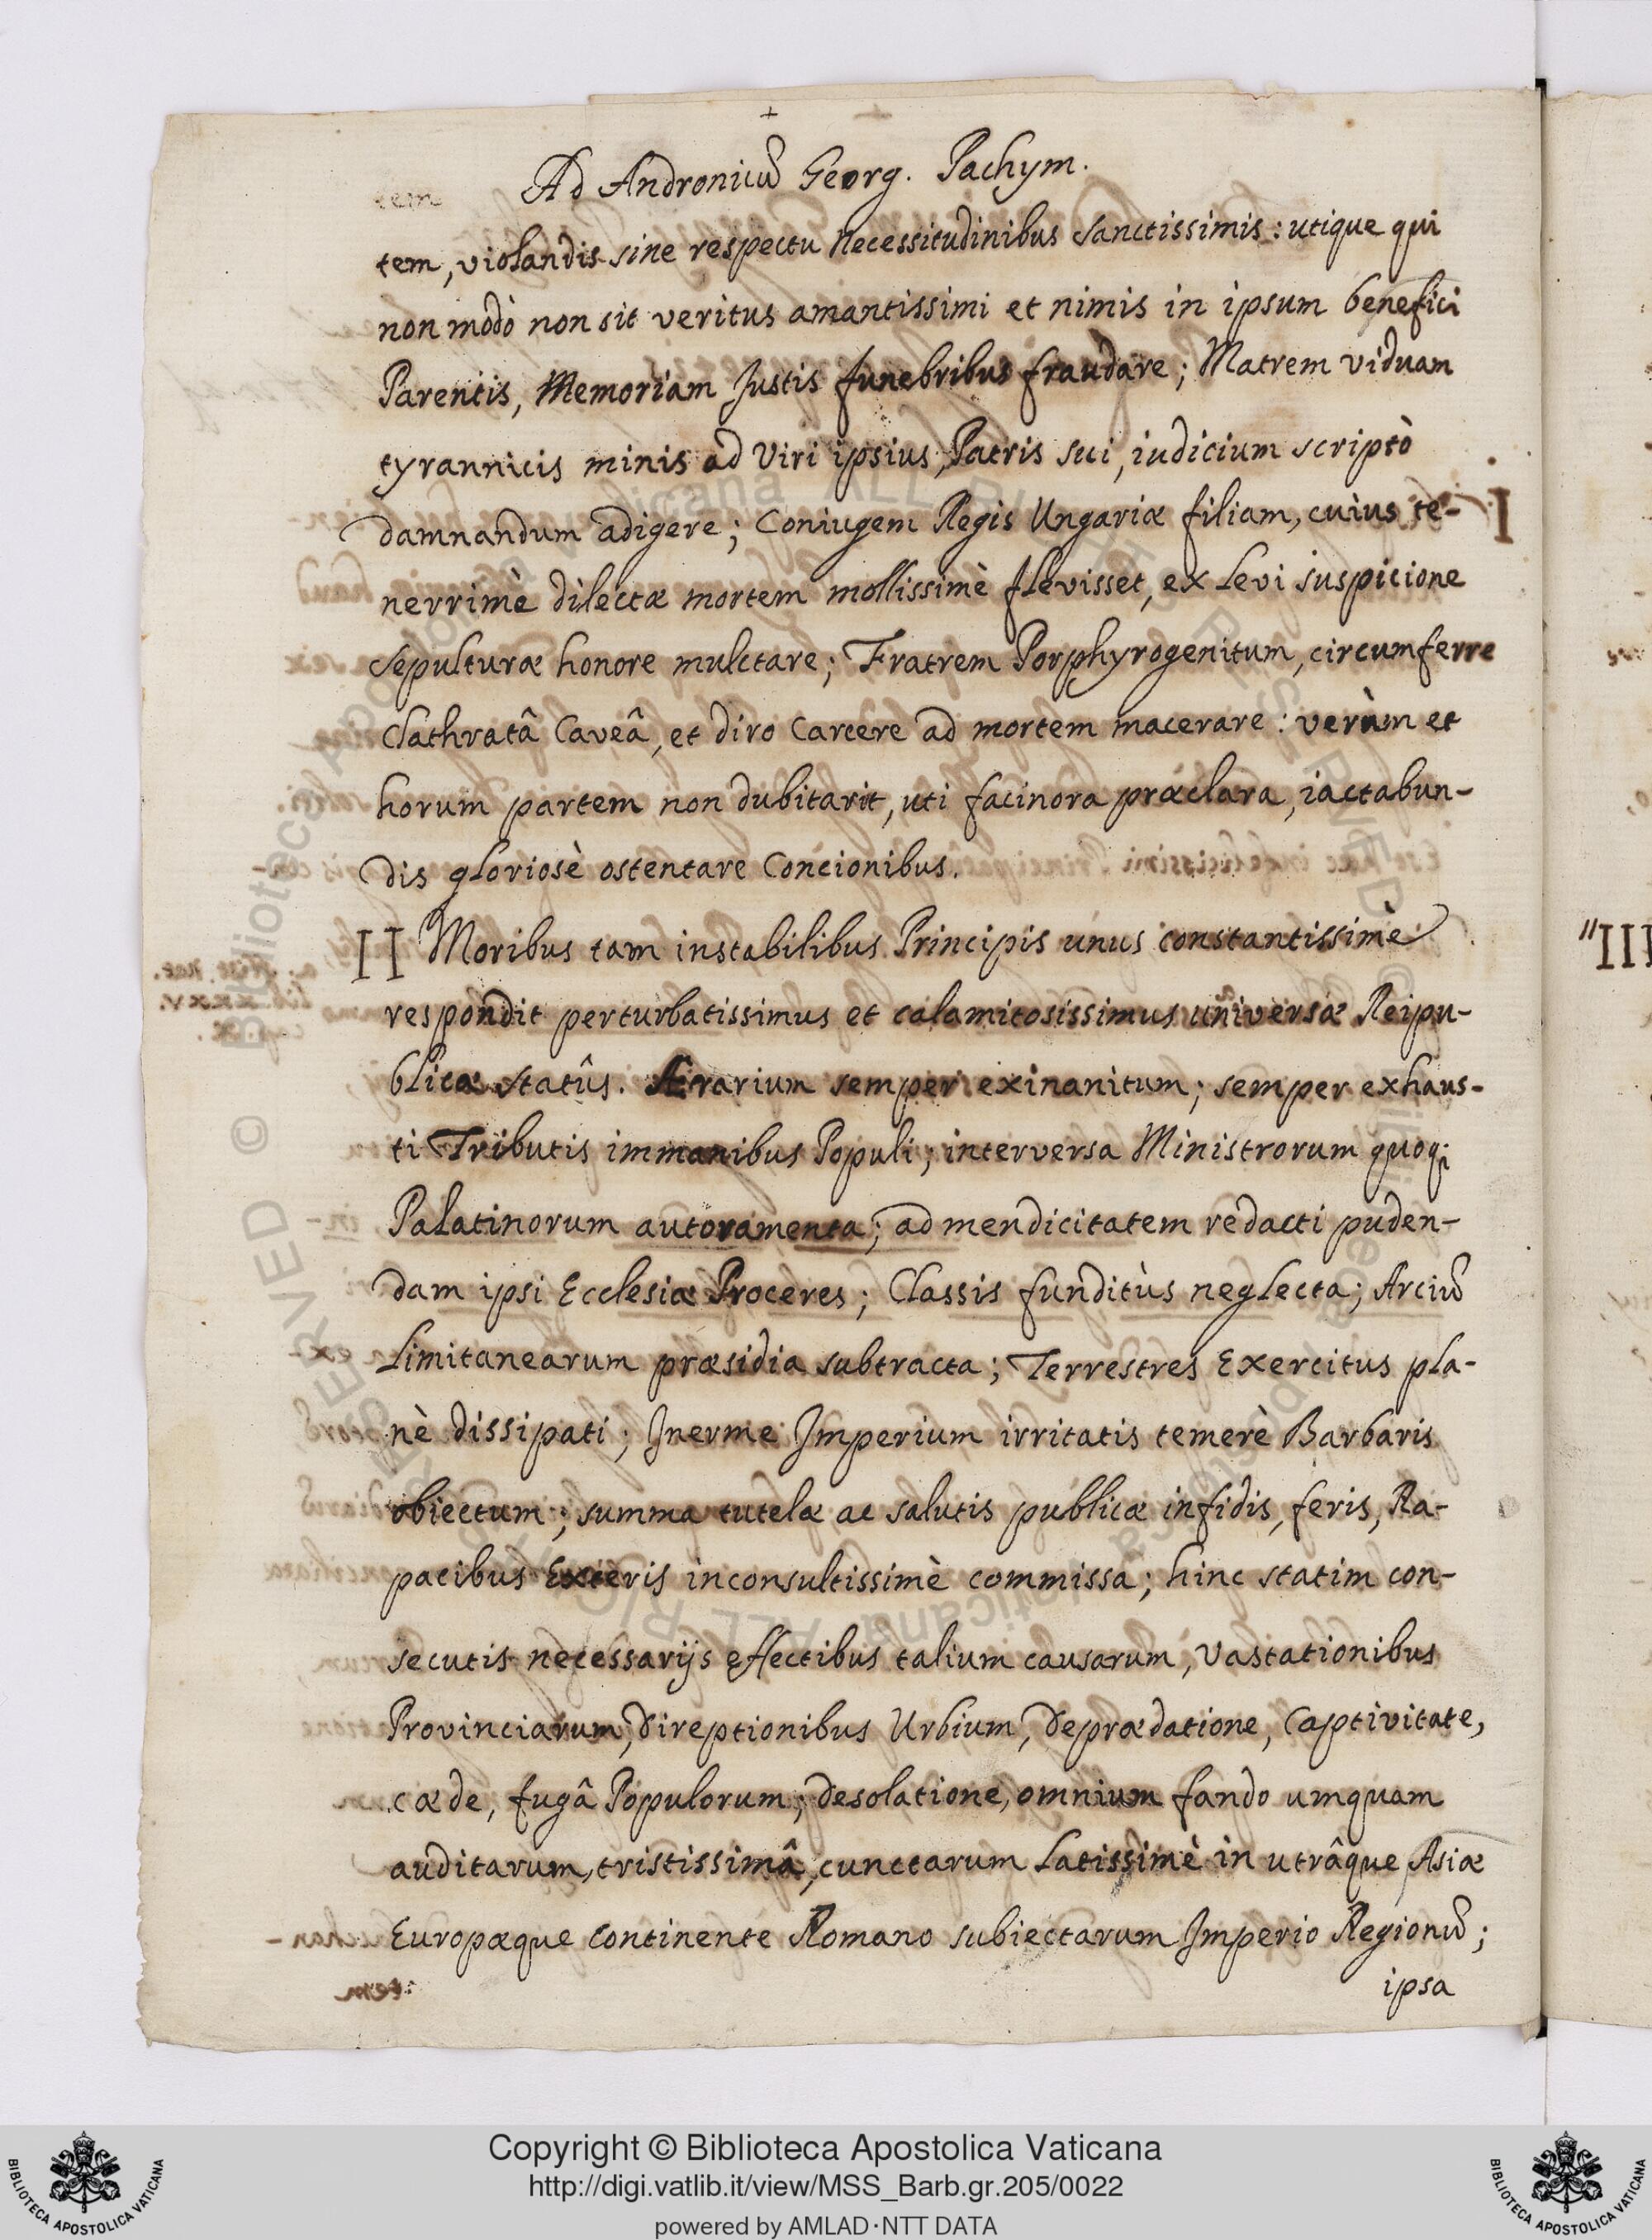 Ad Andronicũ Georg. Pachym.
tem, violandis sine respectu necessitudinibus sanctissimis: utique qui
non modò non sit veritus amantissimi et nimis in ipsum benefici
Parentis, Memoriam Justis funebribus fraudare; Matrem viduam
tyrannicis minis ad Viri ipsius, Patris sui, iudicium scriptò
damnandum adigere; Coniugem Regis Ungariæ filiam, cuius te-
nerrimè dilectæ mortem mollissimè flevisset, ex levi suspicione
sepulturæ honore mulctare; Fratrem Porphyrogenitum, circumferre
Clathratâ Caveâ, et diro Carcere ad mortem macerare: verùm et
horum partem non dubitarit, uti facinora præclara, iactabun-
dis gloriosè ostentare Concionibus.
II Moribus tam instabilibus Principis unus constantissimè
respondit perturbatissimus et calamitosissimus universæ Reipu-
blicæ statûs. Ærarium semper exinanitum; semper exhaus-
ti Tributis immanibus Populi; interversa Ministrorum quoq;
Palatinorum autoramenta; ad mendicitatem redacti puden-
dam ipsi Ecclesiæ Proceres; Classis funditùs neglecta; Arciũ
Limitanearum præsidia subtracta; Terrestres Exercitus pla-
nè dissipati; Inerme Imperium irritatis temerè Barbaris
obiectum; summa tutelæ ac salutis publicæ infidis, feris, Ra-
pacibus Exteris inconsultissimè commissa; hinc statim con-
secutis necessarijs effectibus talium causarum, Vastationibus
Provinciarum, Direptionibus Urbium, Deprædatione, Captivitate,
cæde, fugâ Populorum; Desolatione, omnium fando umquam
auditarum, tristissimâ, cunctarum Latissimè in utrâque Asiæ
Europæque Continente Romano subiectarum Imperio Regionũ;
ipsa
III
Copyright © Biblioteca Apostolica Vaticana
http://digi.vatlib.it/view/MSS_Barb.gr.205/0022
powered by AMLAD·NTT DATA
BIBLIOTECA APOSTOLICA VATICANA
BIBLIOTECA APOSTOLICA VATICANA